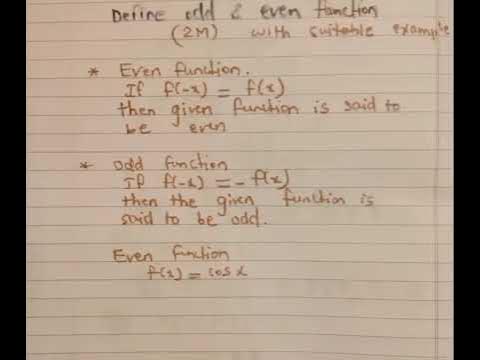 Define odd & even function
(2M) with suitable example
* Even function.
If f(-x) = f(x)
then given function is said to
be even
* odd function
If f(-x) = - f(x)
then the given function is
said to be odd.
Even function
f(x) = cos x